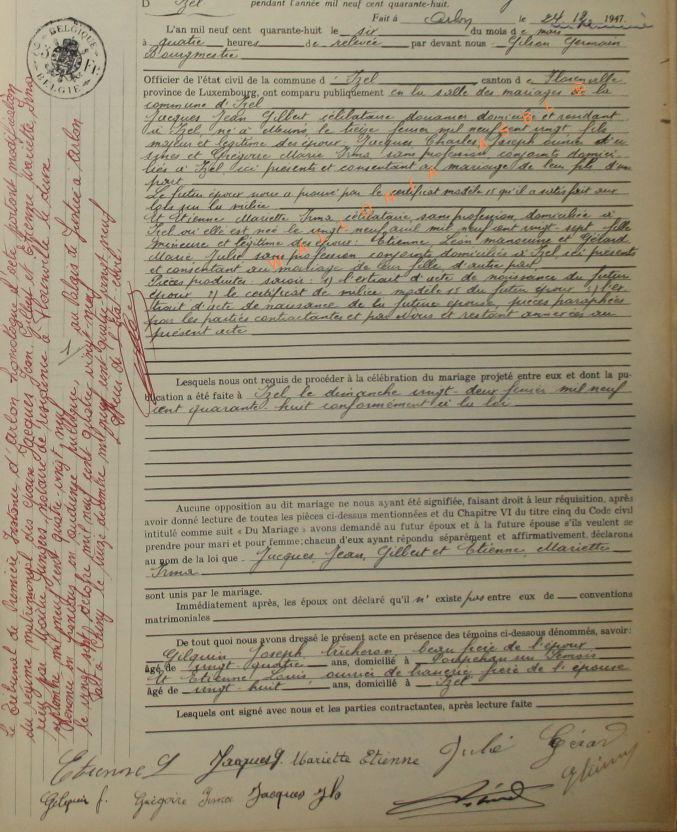 D Izel pendant l'année mil neuf cent quarante-huit.
Fait à Arlon le 24 12 1947.
L'an mil neuf cent quarante-huit le six du mois de mars
à quatre heures de relevée par devant nous Gilson Germain
Bourgmestre
Officier de l'état civil de la commune d' Izel canton de Florenville
province de Luxembourg, ont comparu publiquement en la salle des mariages de la
commune d'Izel
Jacques Jean Gilbert célibataire douanier domicilié et
à Izel, né à le treize février mil neuf cent vingt fils
majeur et légitime des époux, Jacques Charles Joseph ouvrier d'u
sines et Grégoire Marie Irma, sans profession conjoints domici-
liés à Izel ici présents et consentant au mariage de leur fils d'une
part
Le futur époux nous a prouvé par le certificat modèle 15 qu'il a satisfait aux
lois sur la milice
Et Etienne Mariette Irma, célibataire, sans profession, domiciliée à
Izel où elle est née le vingt-neuf avril mil neuf cent vingt-sept fille
mineure et légitime des époux: Etienne, Léon manoeuvre et Gérard
Marie, Julie sans profession conjoints domiciliés à Izel ici présents
et consentant au mariage de leur fille d'autre part
Pièces produites: savoir: 1) l'extrait d'acte de naissance du futur
époux 2) le certificat de milice modèle 15 du futur époux 3) l'ex
trait d'acte de naissance de la future épouse, pièces paraphées
par les parties contractantes et par nous et restant annexées au
présent acte
Lesquels nous ont requis de procéder à la célébration du mariage projeté entre eux et dont la pu-
blication a été faite à Izel, le dimanche vingt-deux février mil neuf
cent quarante-huit conformément à la loi
Aucune opposition au dit mariage ne nous ayant été signifiée, faisant droit à leur réquisition, après
avoir donné lecture de toutes les pièces ci-dessus mentionnées et du Chapitre VI du titre cinq du Code civil
intitulé comme suit « Du Mariage » avons demandé au futur époux et à la future épouse s'ils veulent se
prendre pour mari et pour femme; chacun d'eux ayant répondu séparément et affirmativement, déclarons
au nom de la loi que Jacques, Jean, Gilbert et Etienne, Mariette
Irma
sont unis par le mariage.
Immédiatement après, les époux ont déclaré qu'il n'existe pas entre eux de conventions
matrimoniales
De tout quoi nous avons dressé le présent acte en présence des témoins ci-dessous dénommés, savoir:
Gilquin Joseph, bûcheron, beau frère de l'époux
âgé de vingt quatre ans, domicilié à sur Semois
Et Etienne Louis, ouvrier de banque, frère de l'épouse
âgé de vingt huit ans, domicilié à Izel
Lesquels ont signé avec nous et les parties contractantes, après lecture faite
Etienne L Jacques J. Mariette Etienne Julie Gérard
Gilquin J. Grégoire Irma Jacques Jh
BELGIQUE
BELGIE
Le tribunal de Première Instance d'Arlon homologue l'acte portant modification
du régime matrimonial des époux Jacques Jean Gilbert et Etienne Mariette Irma
reçu par notaire de résidence à Florenville le deux
septembre mil neuf cent quatre-vingt neuf
Prononcé en audience publique, au Palais de Justice à Arlon
le vingt sept octobre mil neuf cent quatre vingt neuf
Fait à Chiny le treize décembre mil neuf cent quatre vingt neuf
L'officier de l'état civil